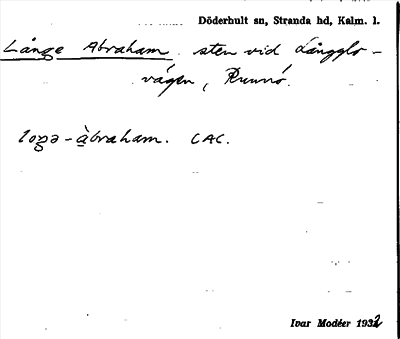 Döderhult sn, Stranda hd, Kalm. l.
Långe Abraham sten vid Långglo-
vågen, Runnö.
loŋə-àbraham. CAC.
Ivar Modéer 1932